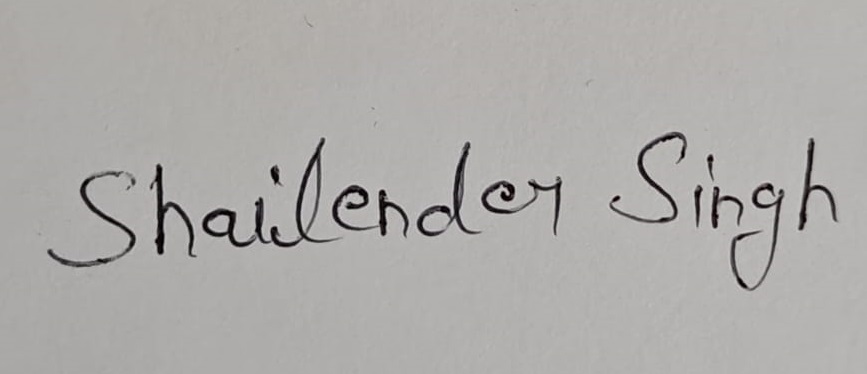 Shailender Singh